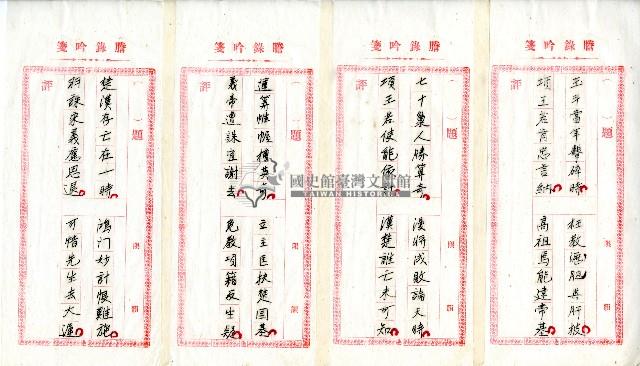 謄錄吟箋
題
玉斗當年擊碎時 枉教胆與肝披
項王若肯忠言納 高祖焉能建帝基
評
謄錄吟箋
題
七十巢人勝算奇 漫將成敗論天時
項王若使能依計 漢楚誰亡未可知
評
謄錄吟箋
題
運算帷幄英奇 立主匡扶楚國基
義帝遭誅宜謝去 免教項籍反生疑
評
謄錄吟箋
題
楚漢存亡在一時 鴻門妙計恨難施
誅宋義應思退 可惜先生去太遲
評
國史館臺灣文獻館
TAIWAN HISTORICA